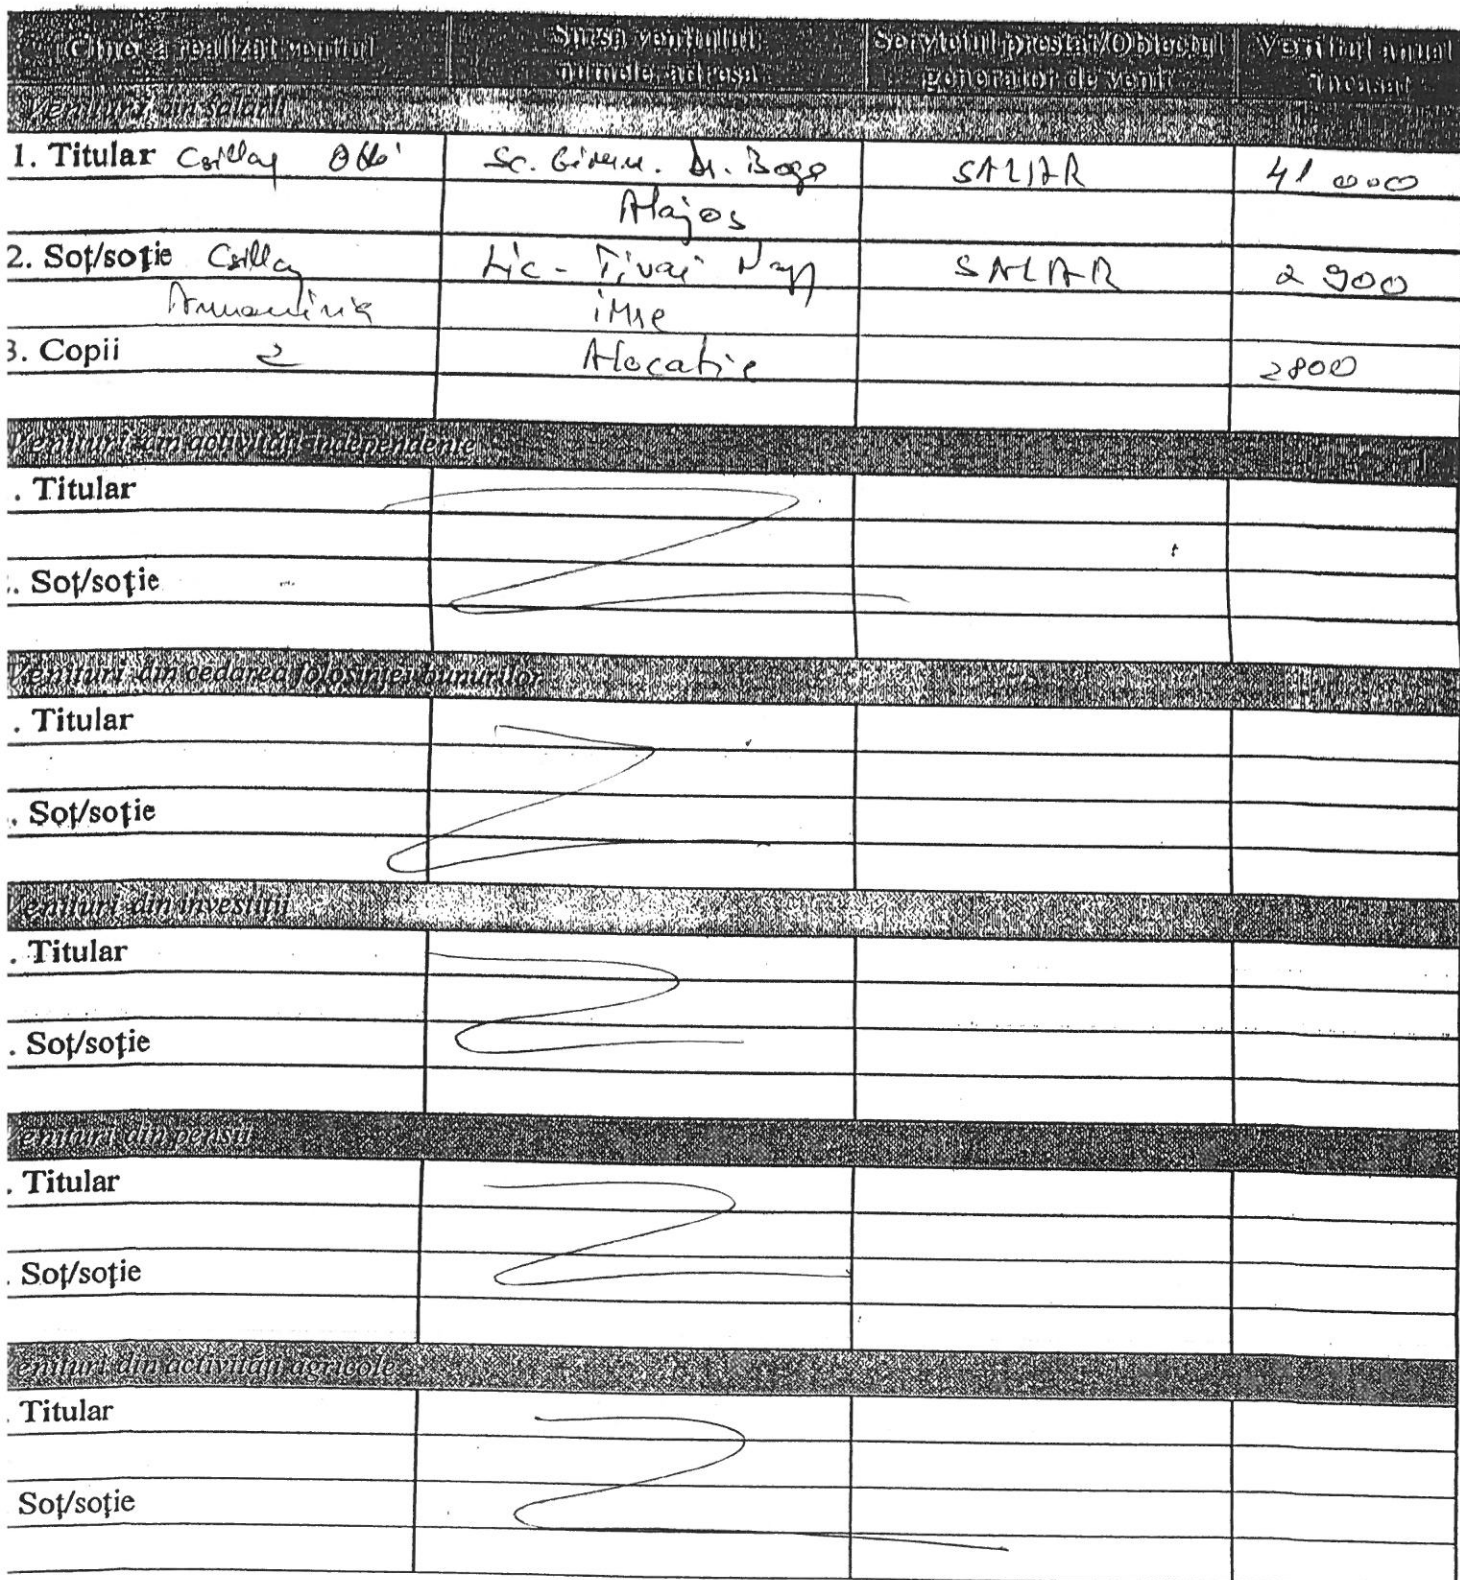 Cine a realizat venitul | Sursa venitului: numele, adresa | Serviciul prestat/Obiectul generator de venit | Venitul anual încasat
Venituri din salarii
1. Titular Csillag | Sc. Gimn. Dr. Boga | SALAR | 41 000
Alajos
2. Soț/soție Csillag | Lic - Tivai Nagy | SALAR | 2 900
imre
3. Copii 2 | Alocatie | 2800
Venituri din activități independente
. Titular
. Soț/soție
Venituri din cedarea folosinței bunurilor
. Titular
. Soț/soție
Venituri din investiții
. Titular
. Soț/soție
Venituri din pensii
. Titular
. Soț/soție
enituri din activități agricole
. Titular
Soț/soție